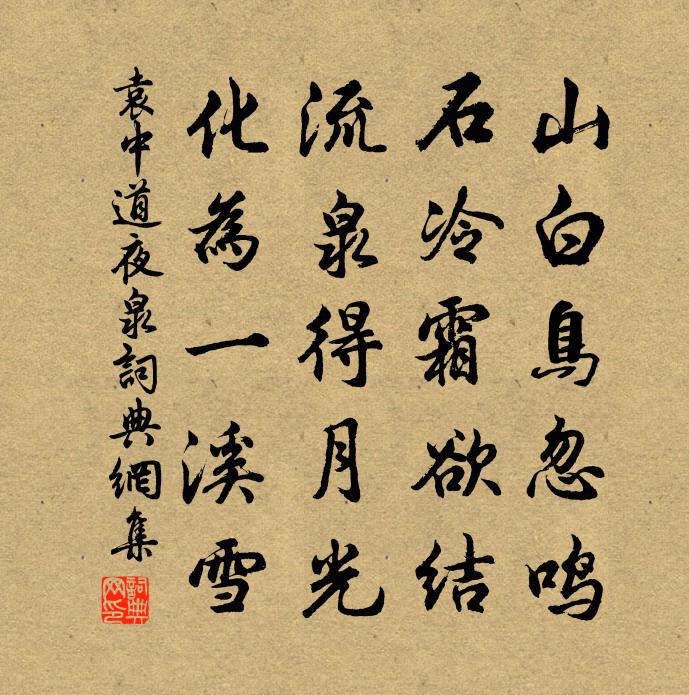 山白鳥忽鳴
石冷霜欲結
流泉得月光
化為一溪雪
袁中道夜泉詞典網集
詞典網印